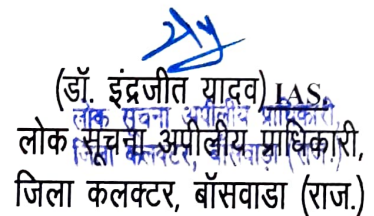 (डॉ. इंद्रजीत यादव) IAS,
लोक सूचना अपीलीय प्राधिकारी
लोक सूचना अपीलीय प्राधिकारी,
जिला कलक्टर, बॉसवाडा (राज.)